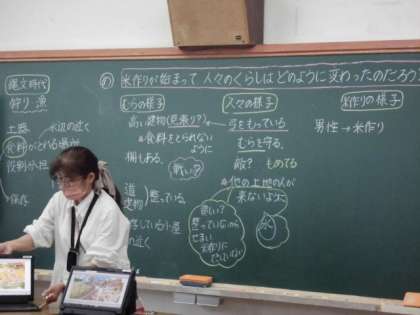 め 米作りが始まって人々のくらしはどのように変わったのだろう
縄文時代
狩り 漁
土器 水辺の近く
食料がとれる場所
役割分担
保存
むらの様子
高い建物(見張り?)
食料をとられない
ように
柵もある。
戦い?
道
建物
整っている
の近く
人々の様子
弓をもっている
むらを守る。
敵? もめてる
他の土地の人が
来ないように
戦い?
整っていないから
せまい
米作りに
米作りの様子
男性→米作り